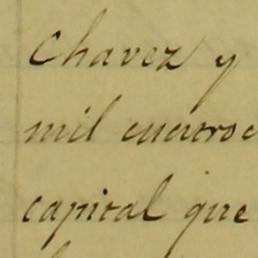 Chavez y
mil cuatroc
capital que